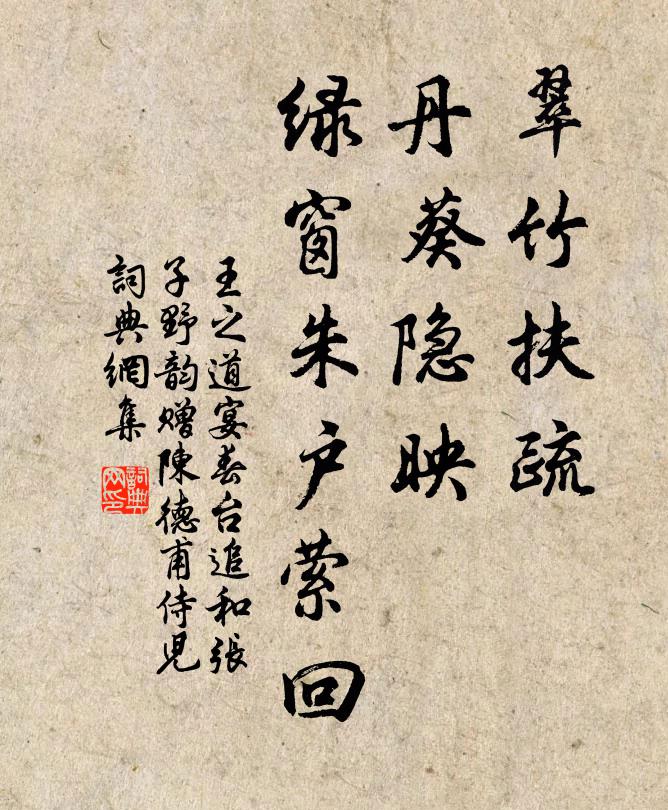 翠竹扶疏
丹葵隐映
绿窗朱户萦回
王之道宴春台追和张
子野韵赠陳德甫侍児
詞典網集
詞典
网印